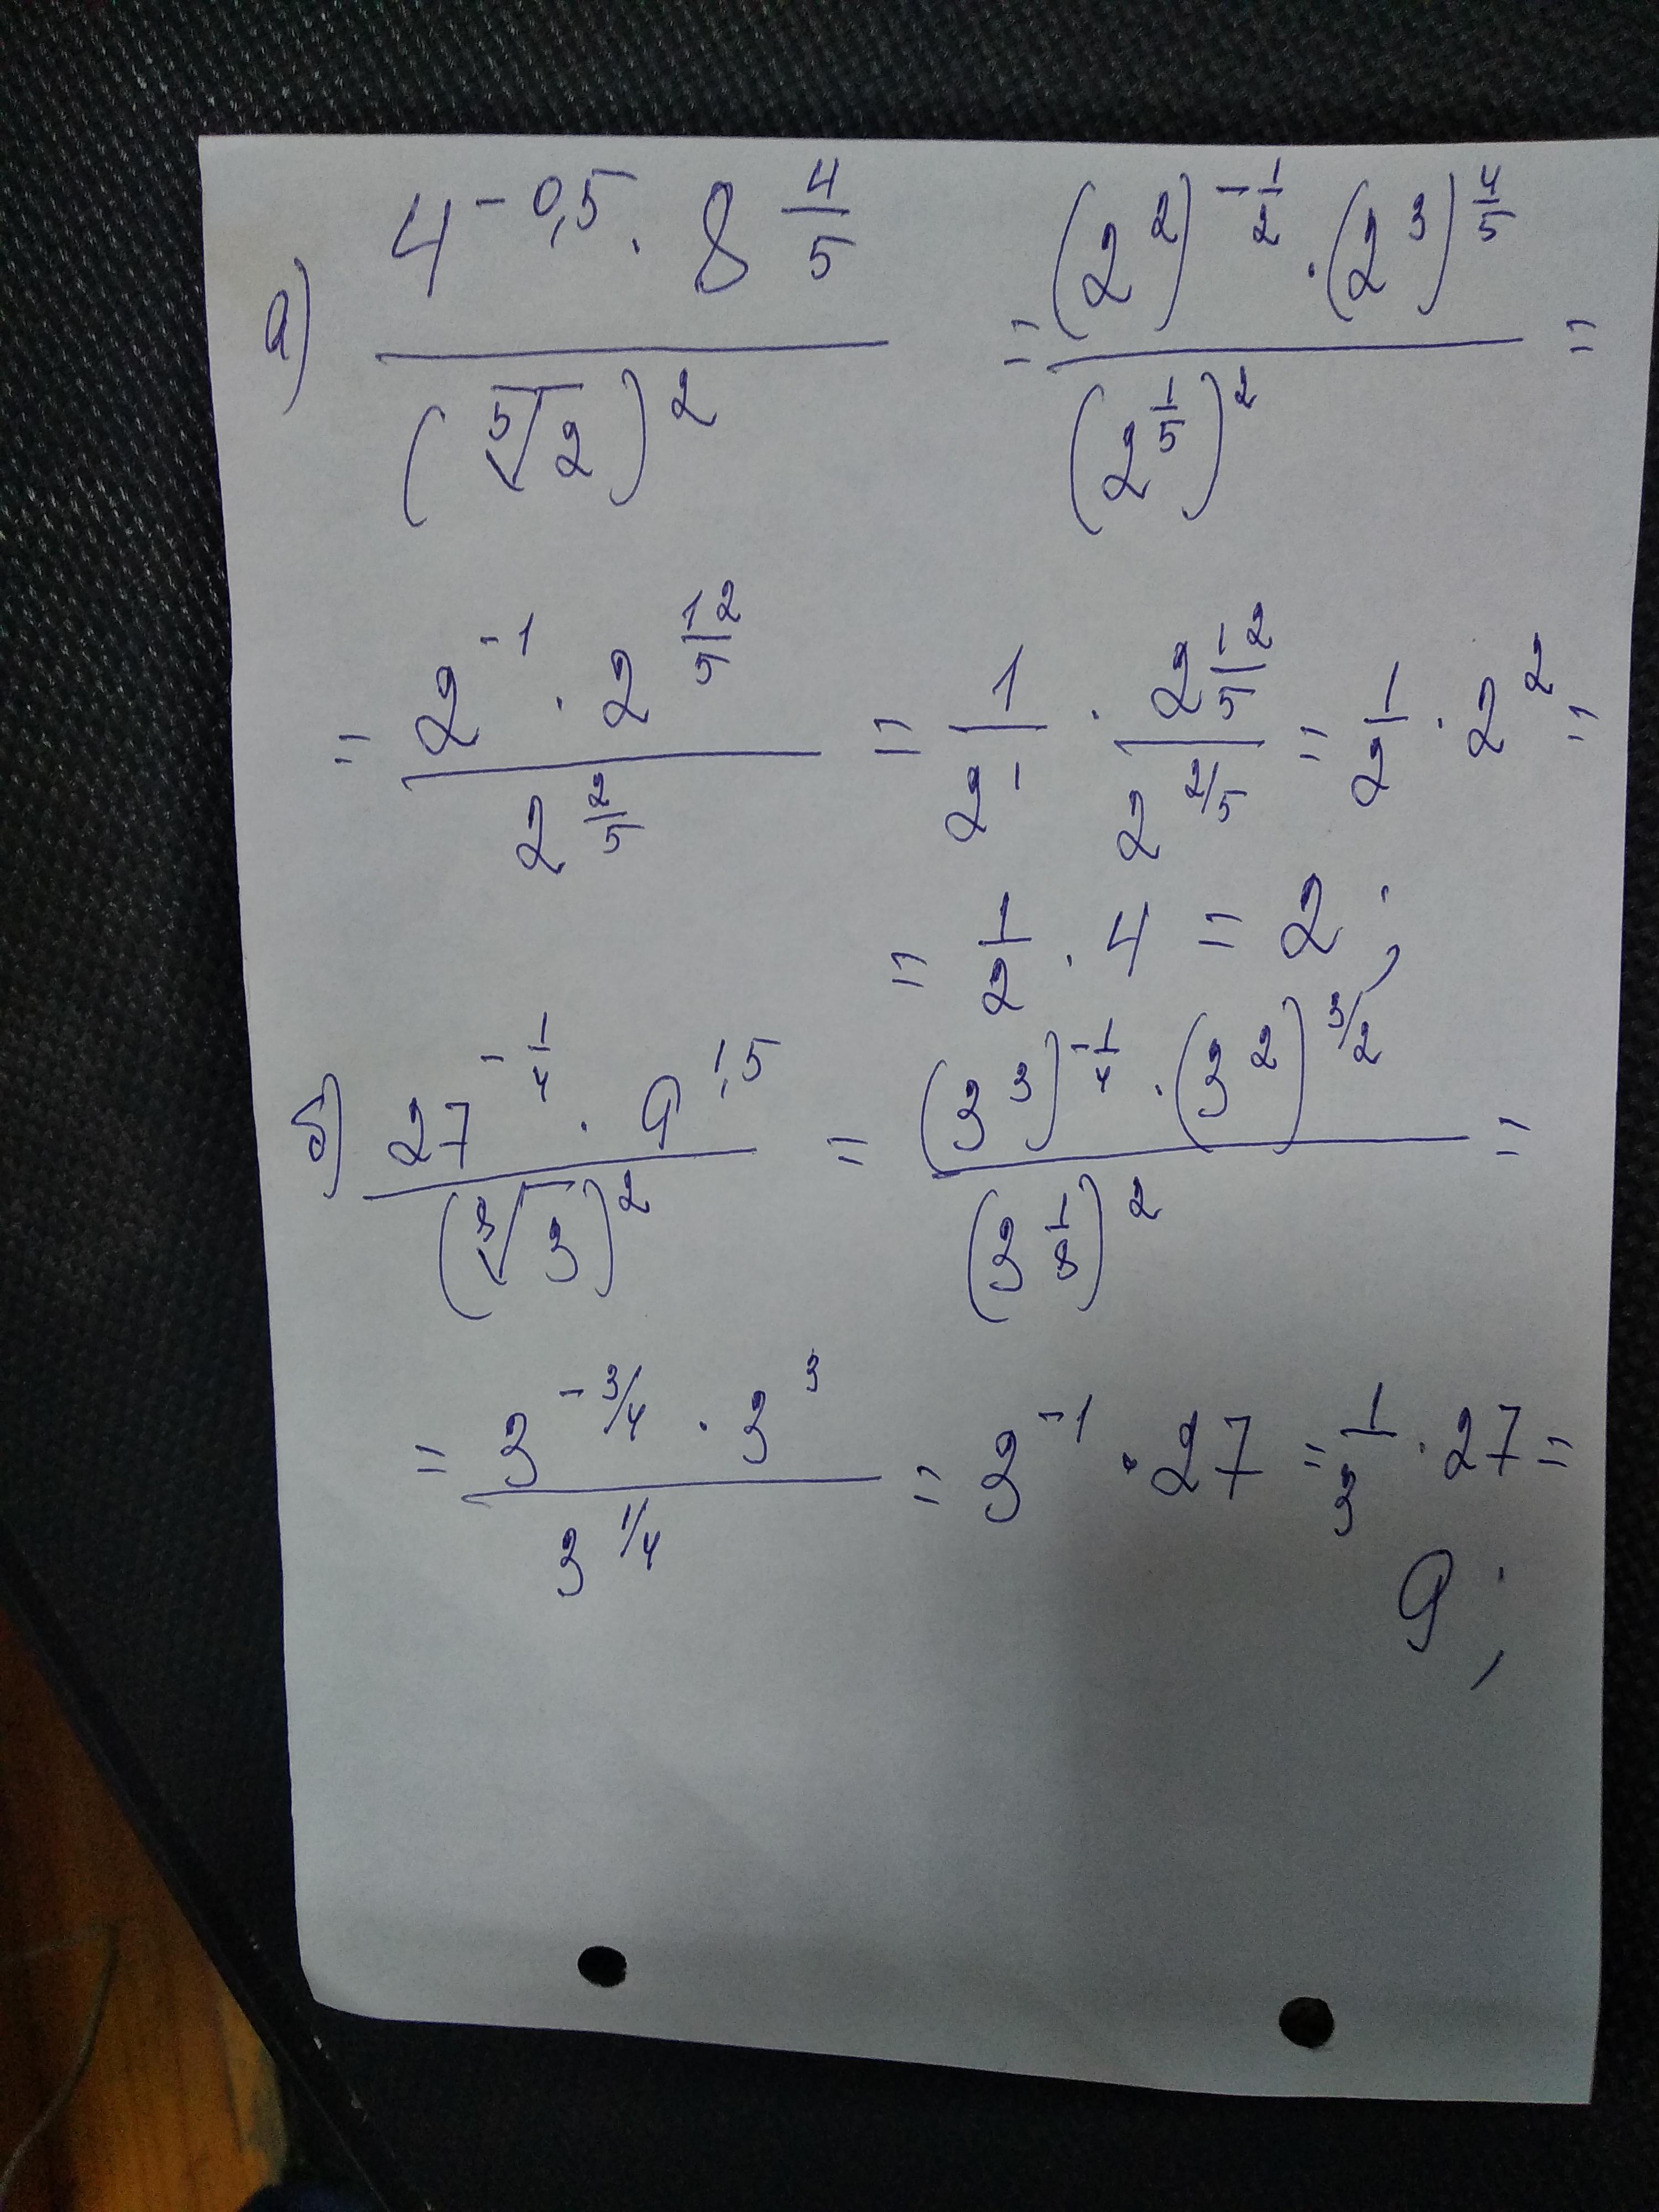 а) \frac{4^{-0,5} \cdot 8^{\frac{4}{5}}}{(\sqrt[5]{2})^2} = \frac{(2^2)^{-\frac{1}{2}} \cdot (2^3)^{\frac{4}{5}}}{(2^{\frac{1}{5}})^2} =
= \frac{2^{-1} \cdot 2^{\frac{12}{5}}}{2^{\frac{2}{5}}} = \frac{1}{2^1} \cdot \frac{2^{\frac{12}{5}}}{2^{2/5}} = \frac{1}{2} \cdot 2^2 =
= \frac{1}{2} \cdot 4 = 2;
б) \frac{27^{-\frac{1}{4}} \cdot 9^{1,5}}{(\sqrt[3]{3})^2} = \frac{(3^3)^{-\frac{1}{4}} \cdot (3^2)^{3/2}}{(3^{\frac{1}{8}})^2} =
= \frac{3^{-3/4} \cdot 3^3}{3^{1/4}} = 3^{-1} \cdot 27 = \frac{1}{3} \cdot 27 =
9;